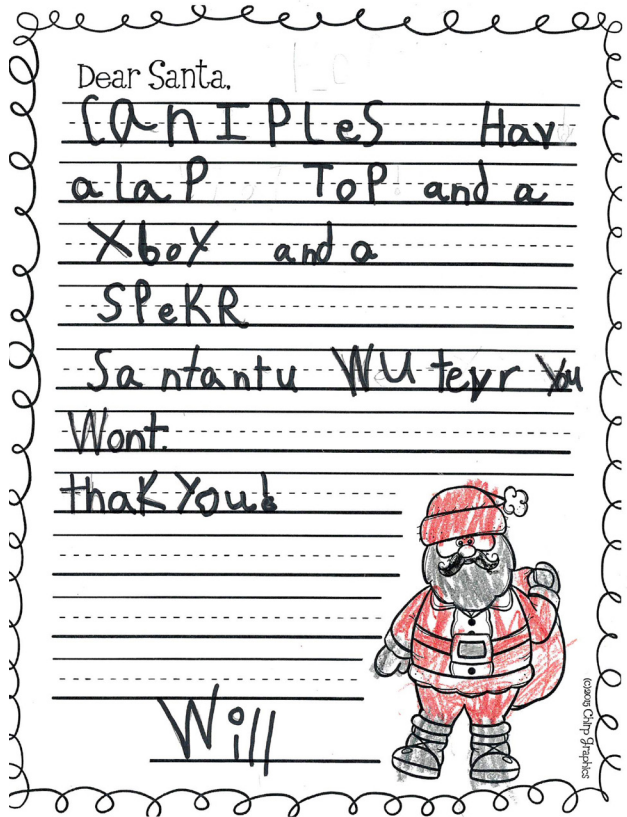 Dear Santa,
Can I PLeS Hav
a laP ToP and a
XboX and a
SPeKR
Santantu WU tevr You
Wont.
thaK You!
Will
(c)2015 Chirp Graphics